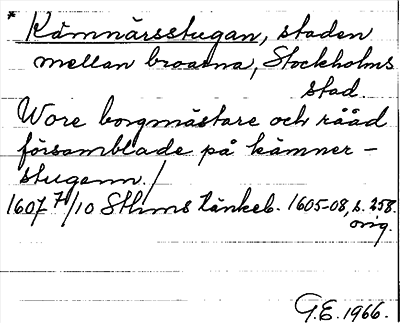 * Kämnärsstugan, staden
mellan broarna, Stockholms
stad.
Wore borgmästare och rååd
församblade på kämner-
stugenn./
1607 7/10 Sthms tänkeb. 1605-08, s. 258.
orig.
G.E. 1966.